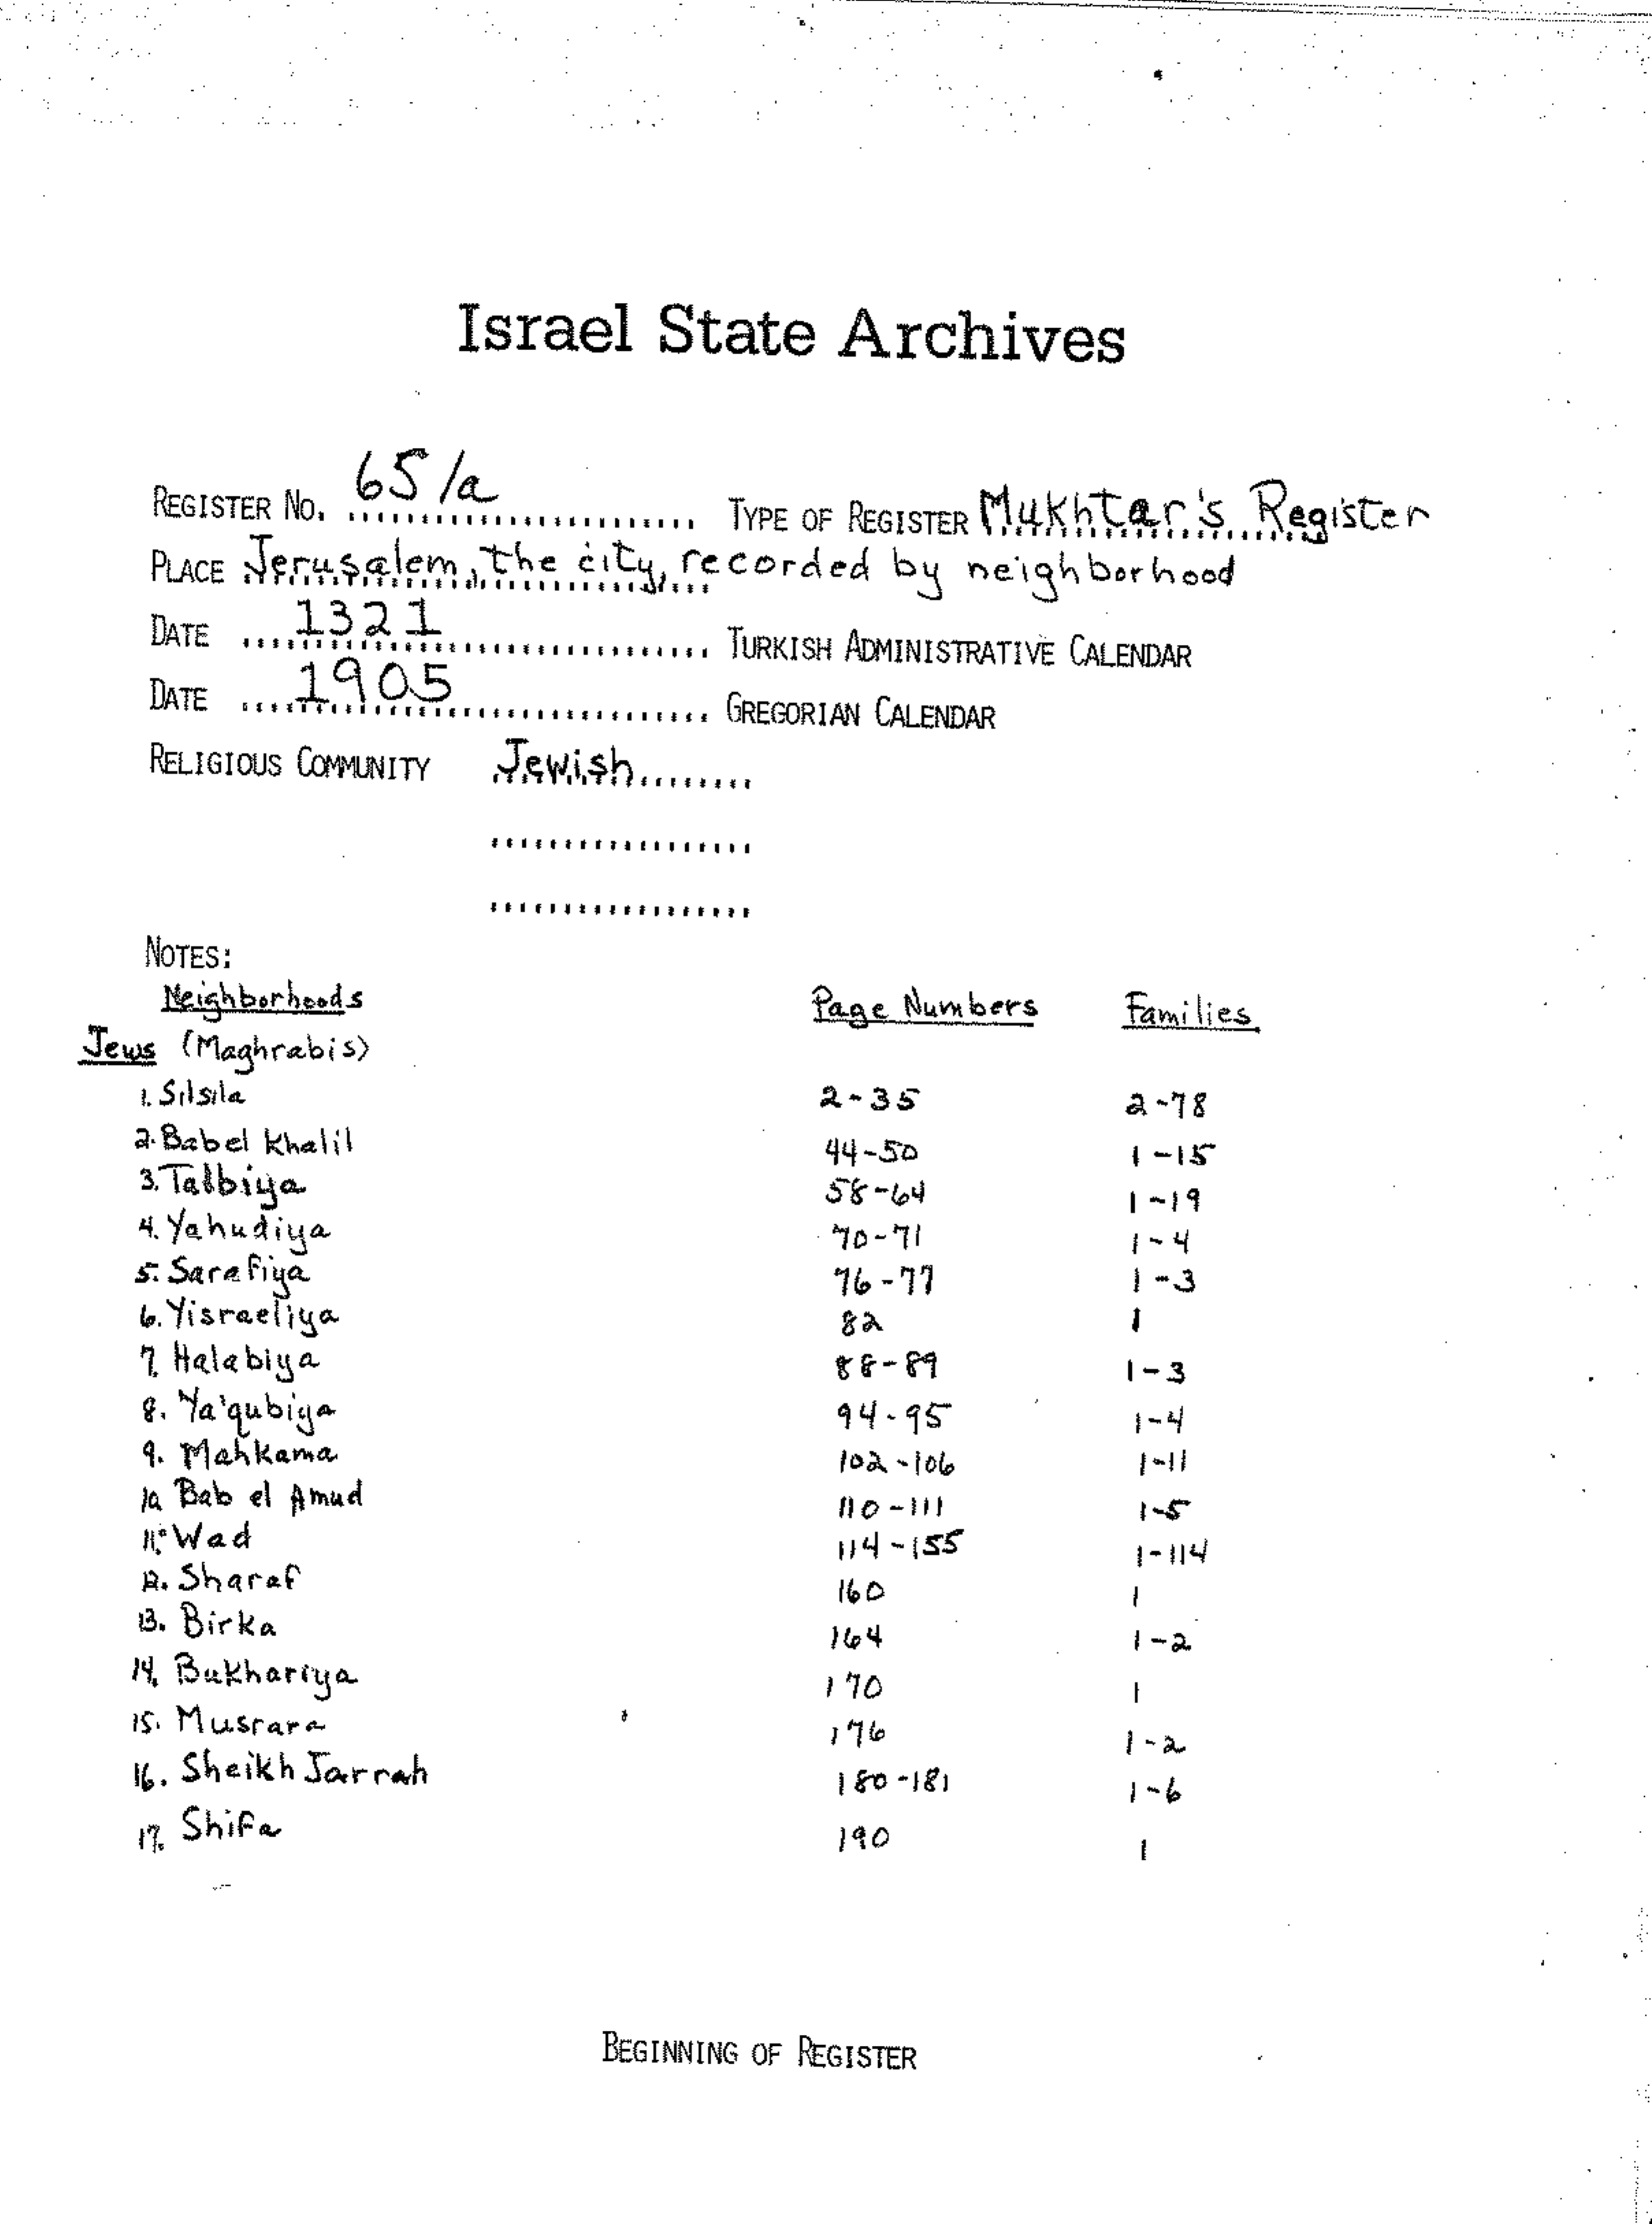 Israel State Archives
REGISTER No. 65/a TYPE OF REGISTER Mukhtar's Register
PLACE Jerusalem, the city, recorded by neighborhood
DATE 1321 TURKISH ADMINISTRATIVE CALENDAR
DATE 1905 GREGORIAN CALENDAR
RELIGIOUS COMMUNITY Jewish
NOTES:
Neighborhoods Page Numbers Families
Jews (Maghrabis)
1. Silsila 2-35 2-78
2. Babel Khalil 44-50 1-15
3. Talbiya 58-64 1-19
4. Yahudiya 70-71 1-4
5. Sarafiya 76-77 1-3
6. Yisraeliya 82 1
7. Halabiya 88-89 1-3
8. Ya'qubiya 94-95 1-4
9. Mahkama 102-106 1-11
10. Bab el Amud 110-111 1-5
11. Wad 114-155 1-114
12. Sharaf 160 1
13. Birka 164 1-2
14. Bukhariya 170 1
15. Musrara 176 1-2
16. Sheikh Jarrah 180-181 1-6
17. Shifa 190 1
BEGINNING OF REGISTER